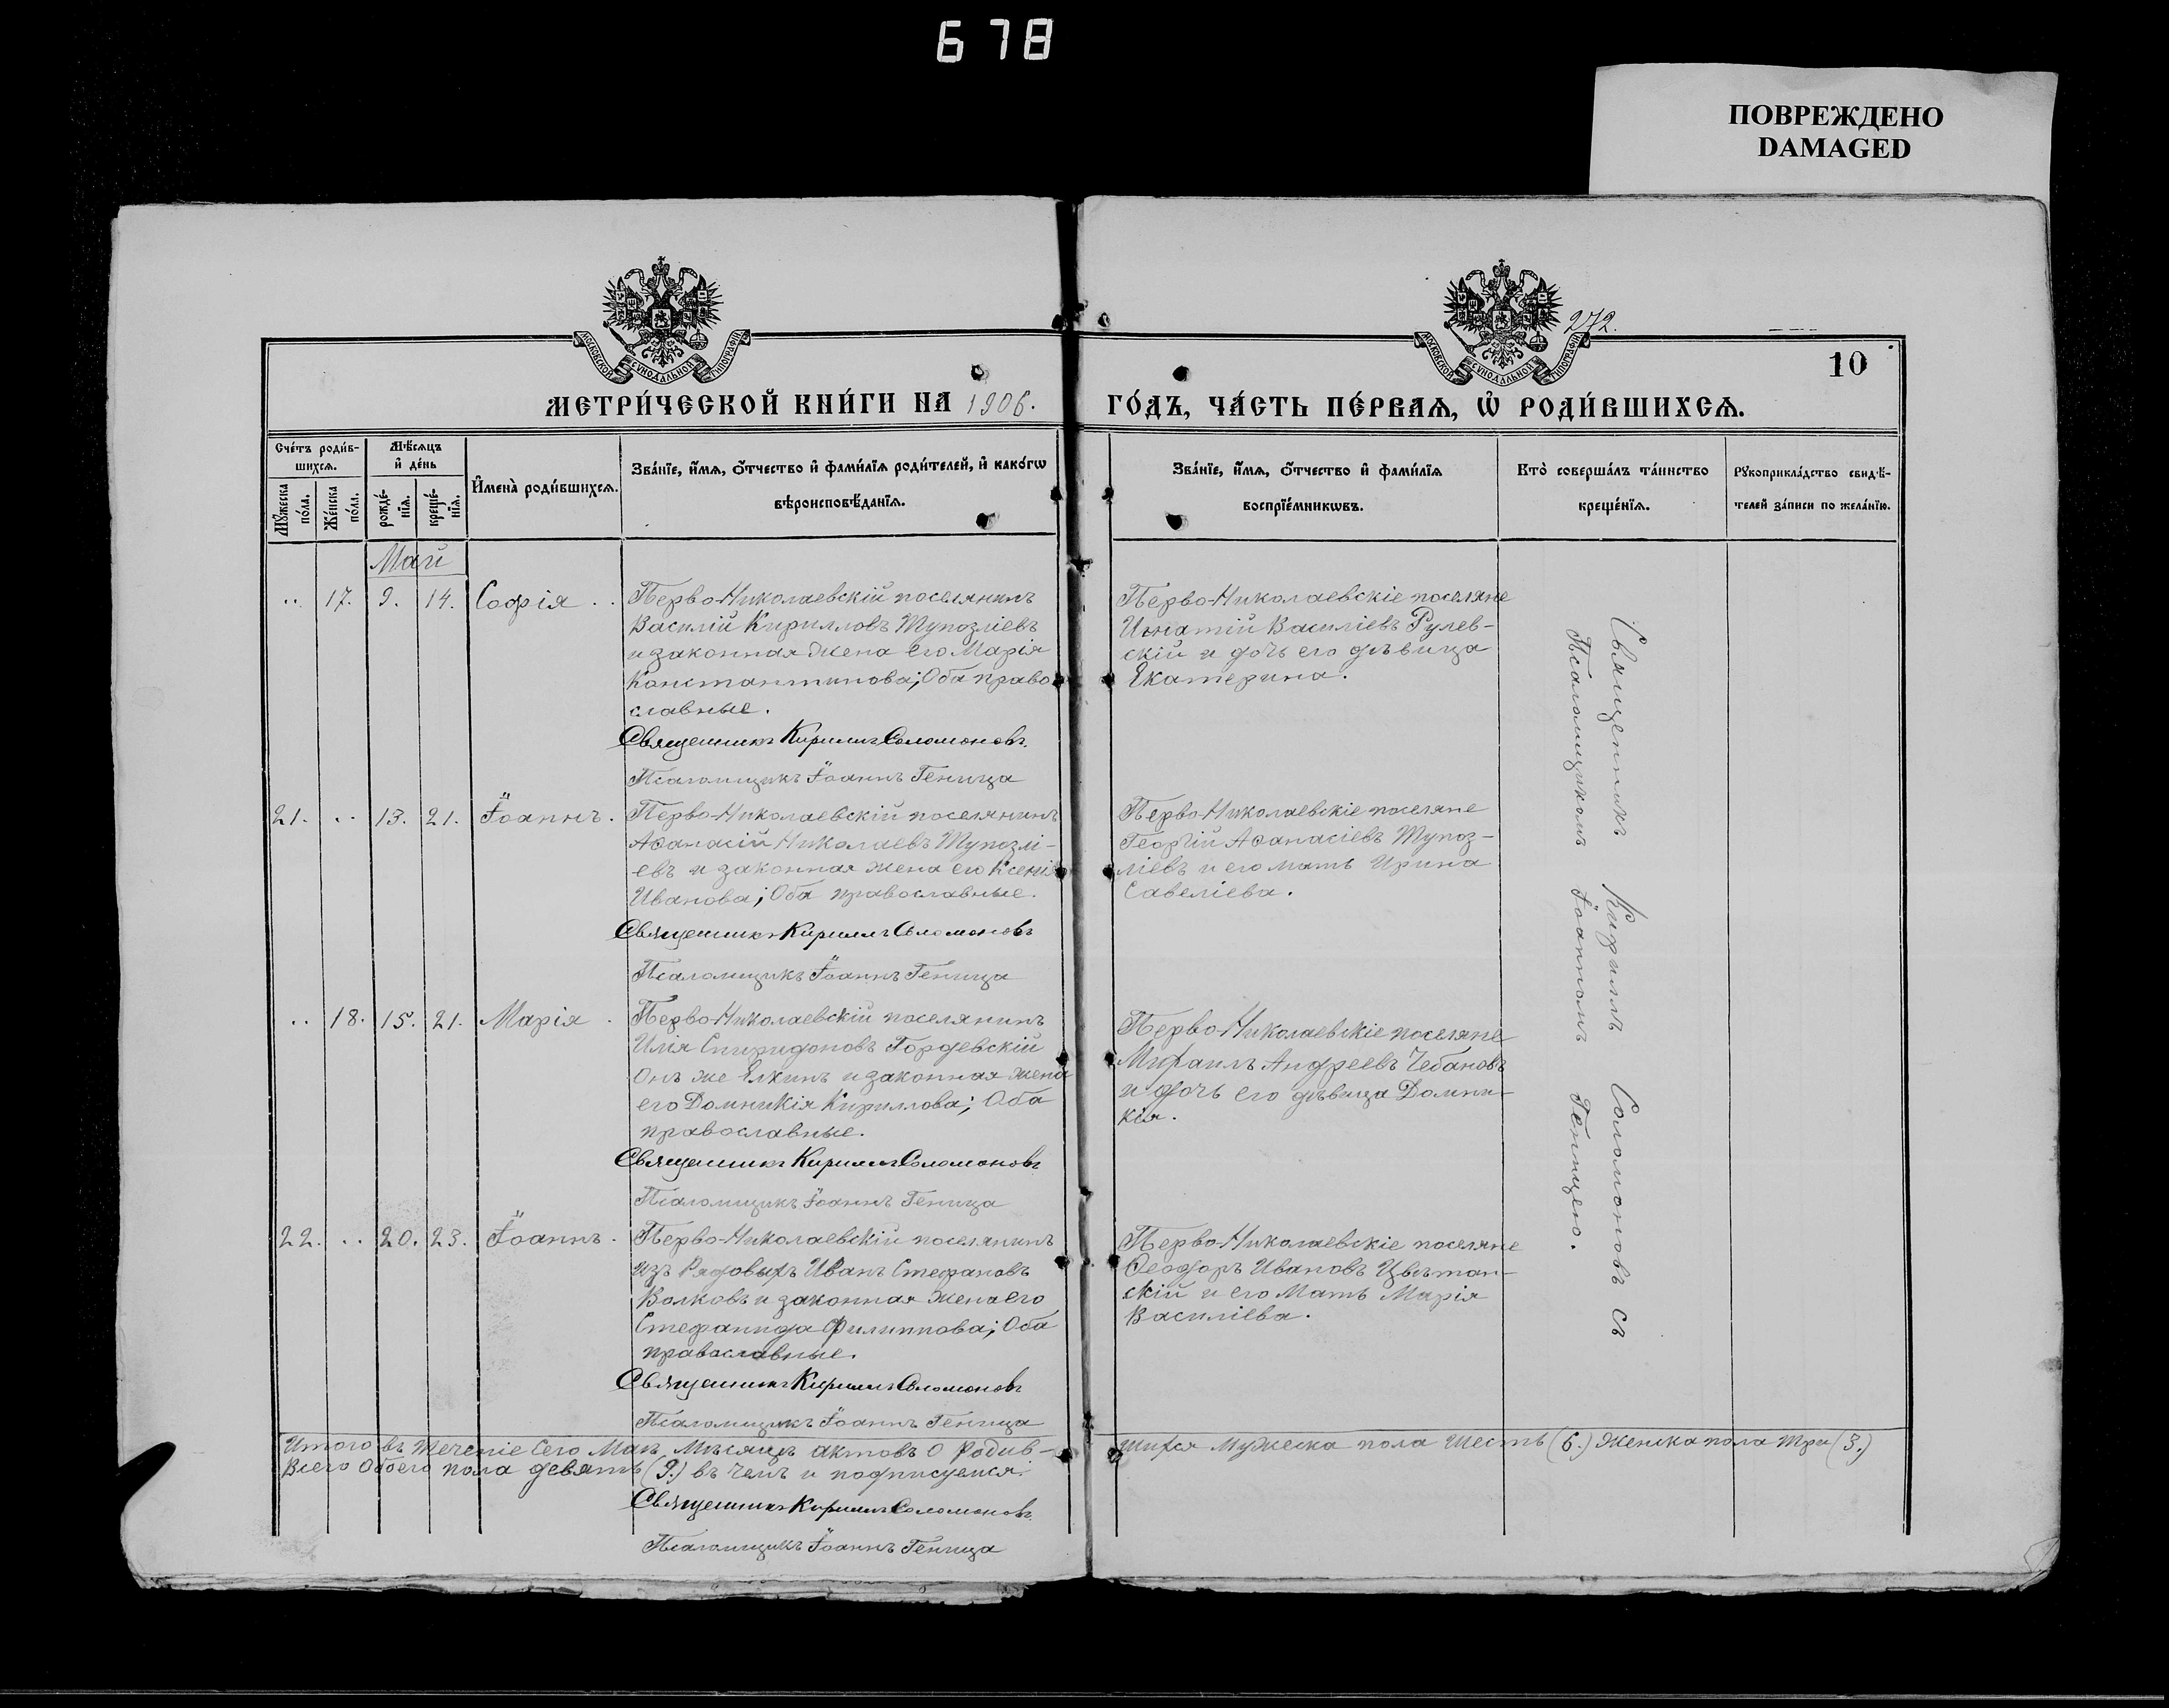 678
ПОВРЕЖДЕНО
DAMAGED
МОСКОВСКОЙ СУНОДАЛЬНОЙ ТИПОГРАФІИ
МОСКОВСКОЙ СУНОДАЛЬНОЙ ТИПОГРАФІИ
272.
10
МЕТРИ́ЧЕСКОЙ КНИ́ГИ НА 1906.
ГО́ДЪ, ЧА́СТЬ ПЕ́РВАѦ, Ѡ҆ РОДИ́ВШИХСѦ.
Сче́тъ роди́в-
шихсѧ.
Мѣ́сѧцъ
и҆ де́нь
Мꙋ́жеска
по́ла.
Же́нска
по́ла.
рожде́-
нїѧ.
креще́-
нїѧ.
И҆мена̀ роди́вшихсѧ.
Зва́нїе, и҆́мѧ, ѻ҆́тчество и҆ фами́лїѧ роди́телей, и҆ како́гѡ
вѣроисповѣ́данїѧ.
Зва́нїе, и҆́мѧ, ѻ҆́тчество и҆ фами́лїѧ
воспрїе́мникѡвъ.
Кто̀ соверша́лъ та́инство
креще́нїѧ.
Рꙋкоприкла́дство свидѣ́-
телей за́писи по жела́нїю.
Май
.. 17. 9. 14. Софія . .
Перво-Николаевскій поселянинъ
Василій Кирилловъ Тупозліевъ
и законная жена его Марія
Константинова; Оба право-
славные.
Священникъ Кириллъ Соломоновъ.
Псаломщикъ Іоаннъ Геница
Перво-Николаевскіе поселяне
Игнатій Василіевъ Рулев-
скій и дочь его дѣвица
Екатерина.
21. .. 13. 21. Іоаннъ.
Перво-Николаевскій поселянинъ
Аѳанасій Николаевъ Тупозлі-
евъ и законная жена его Ксенія
Иванова; Оба православные.
Священникъ Кириллъ Соломоновъ
Псаломщикъ Іоаннъ Геница
Перво-Николаевскіе поселяне
Георгій Аѳанасіевъ Тупоз-
ліевъ и его мать Ирина
Савеліева.
.. 18. 15. 21. Марія .
Перво-Николаевскій поселянинъ
Илія Спиридоновъ Гордевскій
Онъ же Елкинъ и законная жена
его Домникія Кириллова; Оба
православные.
Священникъ Кириллъ Соломоновъ
Псаломщикъ Іоаннъ Геница
Перво-Николаевскіе поселяне
Михаилъ Андреевъ Чебановъ
и дочь его дѣвица Домни-
кія.
22. .. 20. 23. Іоаннъ.
Перво-Николаевскій поселянинъ
изъ Рядовыхъ Иванъ Стефановъ
Волковъ и законная жена его
Стефанида Филиппова; Оба
православные.
Священникъ Кириллъ Соломоновъ
Псаломщикъ Іоаннъ Геница
Перво-Николаевскіе поселяне
Ѳеодоръ Ивановъ Цвѣтан-
скій и его Мать Марія
Василіева.
Священникъ Кириллъ Соломоновъ съ
Псаломщикомъ Іоанномъ Геницею.
Итого въ теченіе сего Маѣ Мѣсяцѣ актовъ о родив-
шихся мужеска пола шесть (6.) женска пола три (3.)
Всего обоего пола девять (9.) въ чемъ и подписуемся.
Священникъ Кириллъ Соломоновъ.
Псаломщикъ Іоаннъ Геница